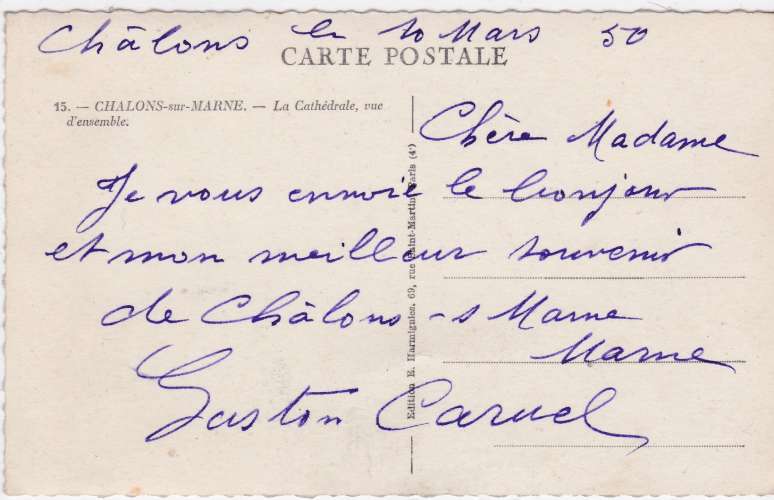 Châlons le 10 Mars 50
CARTE POSTALE
15. — CHALONS-sur-MARNE. — La Cathédrale, vue
d'ensemble.
Chère Madame
Je vous envoie le bonjour
et mon meilleur souvenir
de Châlons -s Marne
Marne
Gaston Caruel
Edition E. Harmignies, 69, rue Saint-Martin, Paris (4°)